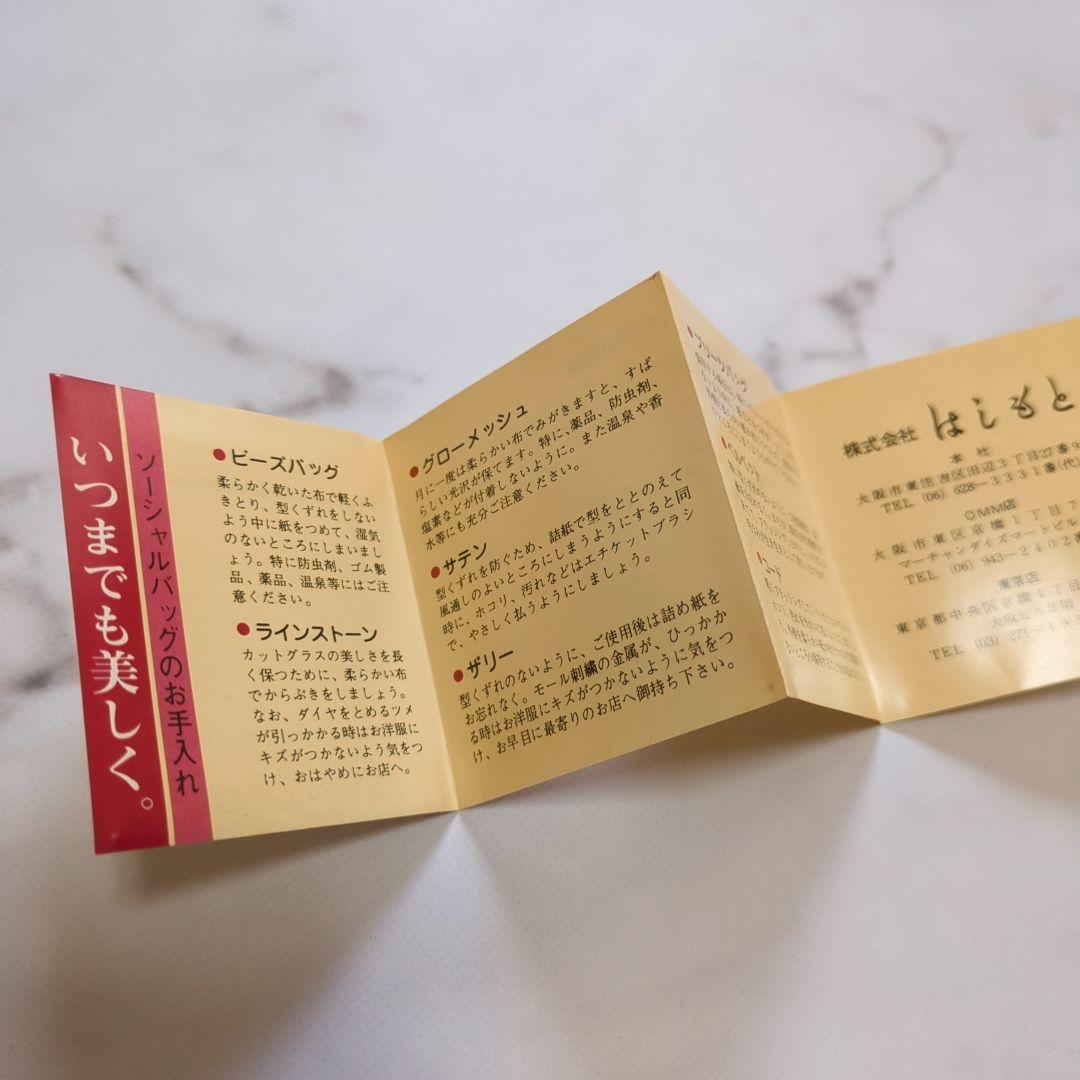 いつまでも美しく。
ソーシャルバッグのお手入れ
●ビーズバッグ
柔らかく乾いた布で軽くふ
きとり、型くずれをしない
よう中に紙をつめて、湿気
のないところにしまいまし
ょう。特に防虫剤、ゴム製
品、薬品、温泉等にはご注
意ください。
●ラインストーン
カットグラスの美しさを長
く保つために、柔らかい布
でからぶきをしましょう。
なお、ダイヤをとめるツメ
が引っかかる時はお洋服に
キズがつかないよう気をつ
け、おはやめにお店へ。
●グローメッシュ
月に一度は柔らかい布でみがきますと、すば
らしい光沢が保てます。特に、薬品、防虫剤、
塩素などが付着しないように。また温泉や香
水等にも充分ご注意ください。
●サテン
型くずれを防ぐため、詰紙で型をととのえて
風通しのよいところにしまうようにすると同
時に、ホコリ、汚れなどはエチケットブラシ
で、やさしく払うようにしましょう。
●ザリー
型くずれのないように、ご使用後は詰め紙を
お忘れなく。モール刺繍の金属が、ひっかか
る時はお洋服にキズがつかないように気をつ
け、お早目に最寄りのお店へ御持ち下さい。
●プリーツバッグ
株式会社 はしもと
本社
大阪市東住吉区田辺3丁目27番9
TEL (06) 628-3331番(代)
OMM店
大阪市東区京橋1丁目7
マーチャンダイズマートビル
TEL (06) 943-2402番
東京店
東京都中央区京橋1丁目
大阪ビル9階
TEL (03) 271-